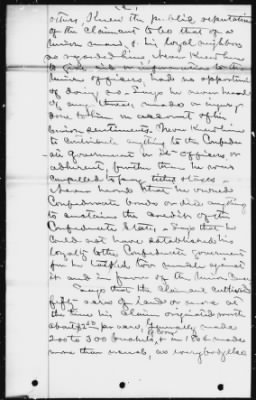 others, Knew the public reputation
of the Claimant to be that of a
Union man, & his loyal neighbors
so regarded him. Never knew him
to give aid or information to the
Union officers, had no opportunity
of doing so. Says he never heard
of any threats made or injury
done to him on account of his
Union sentiments. Never knew him
to contribute anything to the Confeder-
ate government or its officers or
adherents further than he was
compelled to pay tithes & taxes
Never heard that he owned
Confederate bonds or did anything
to sustain the credit of the
Confederate State, Says that he
could not have established his
loyalty to the Confederate government
for he talked too much against
it and in favor of the Union Cause
Says that the Claimant cultivated
fifty acres of land or more at
the time his Claim originated worth
about per acre, Generally made
200 to 300 bushels, & in 1864 made
more than usual, as everybody else